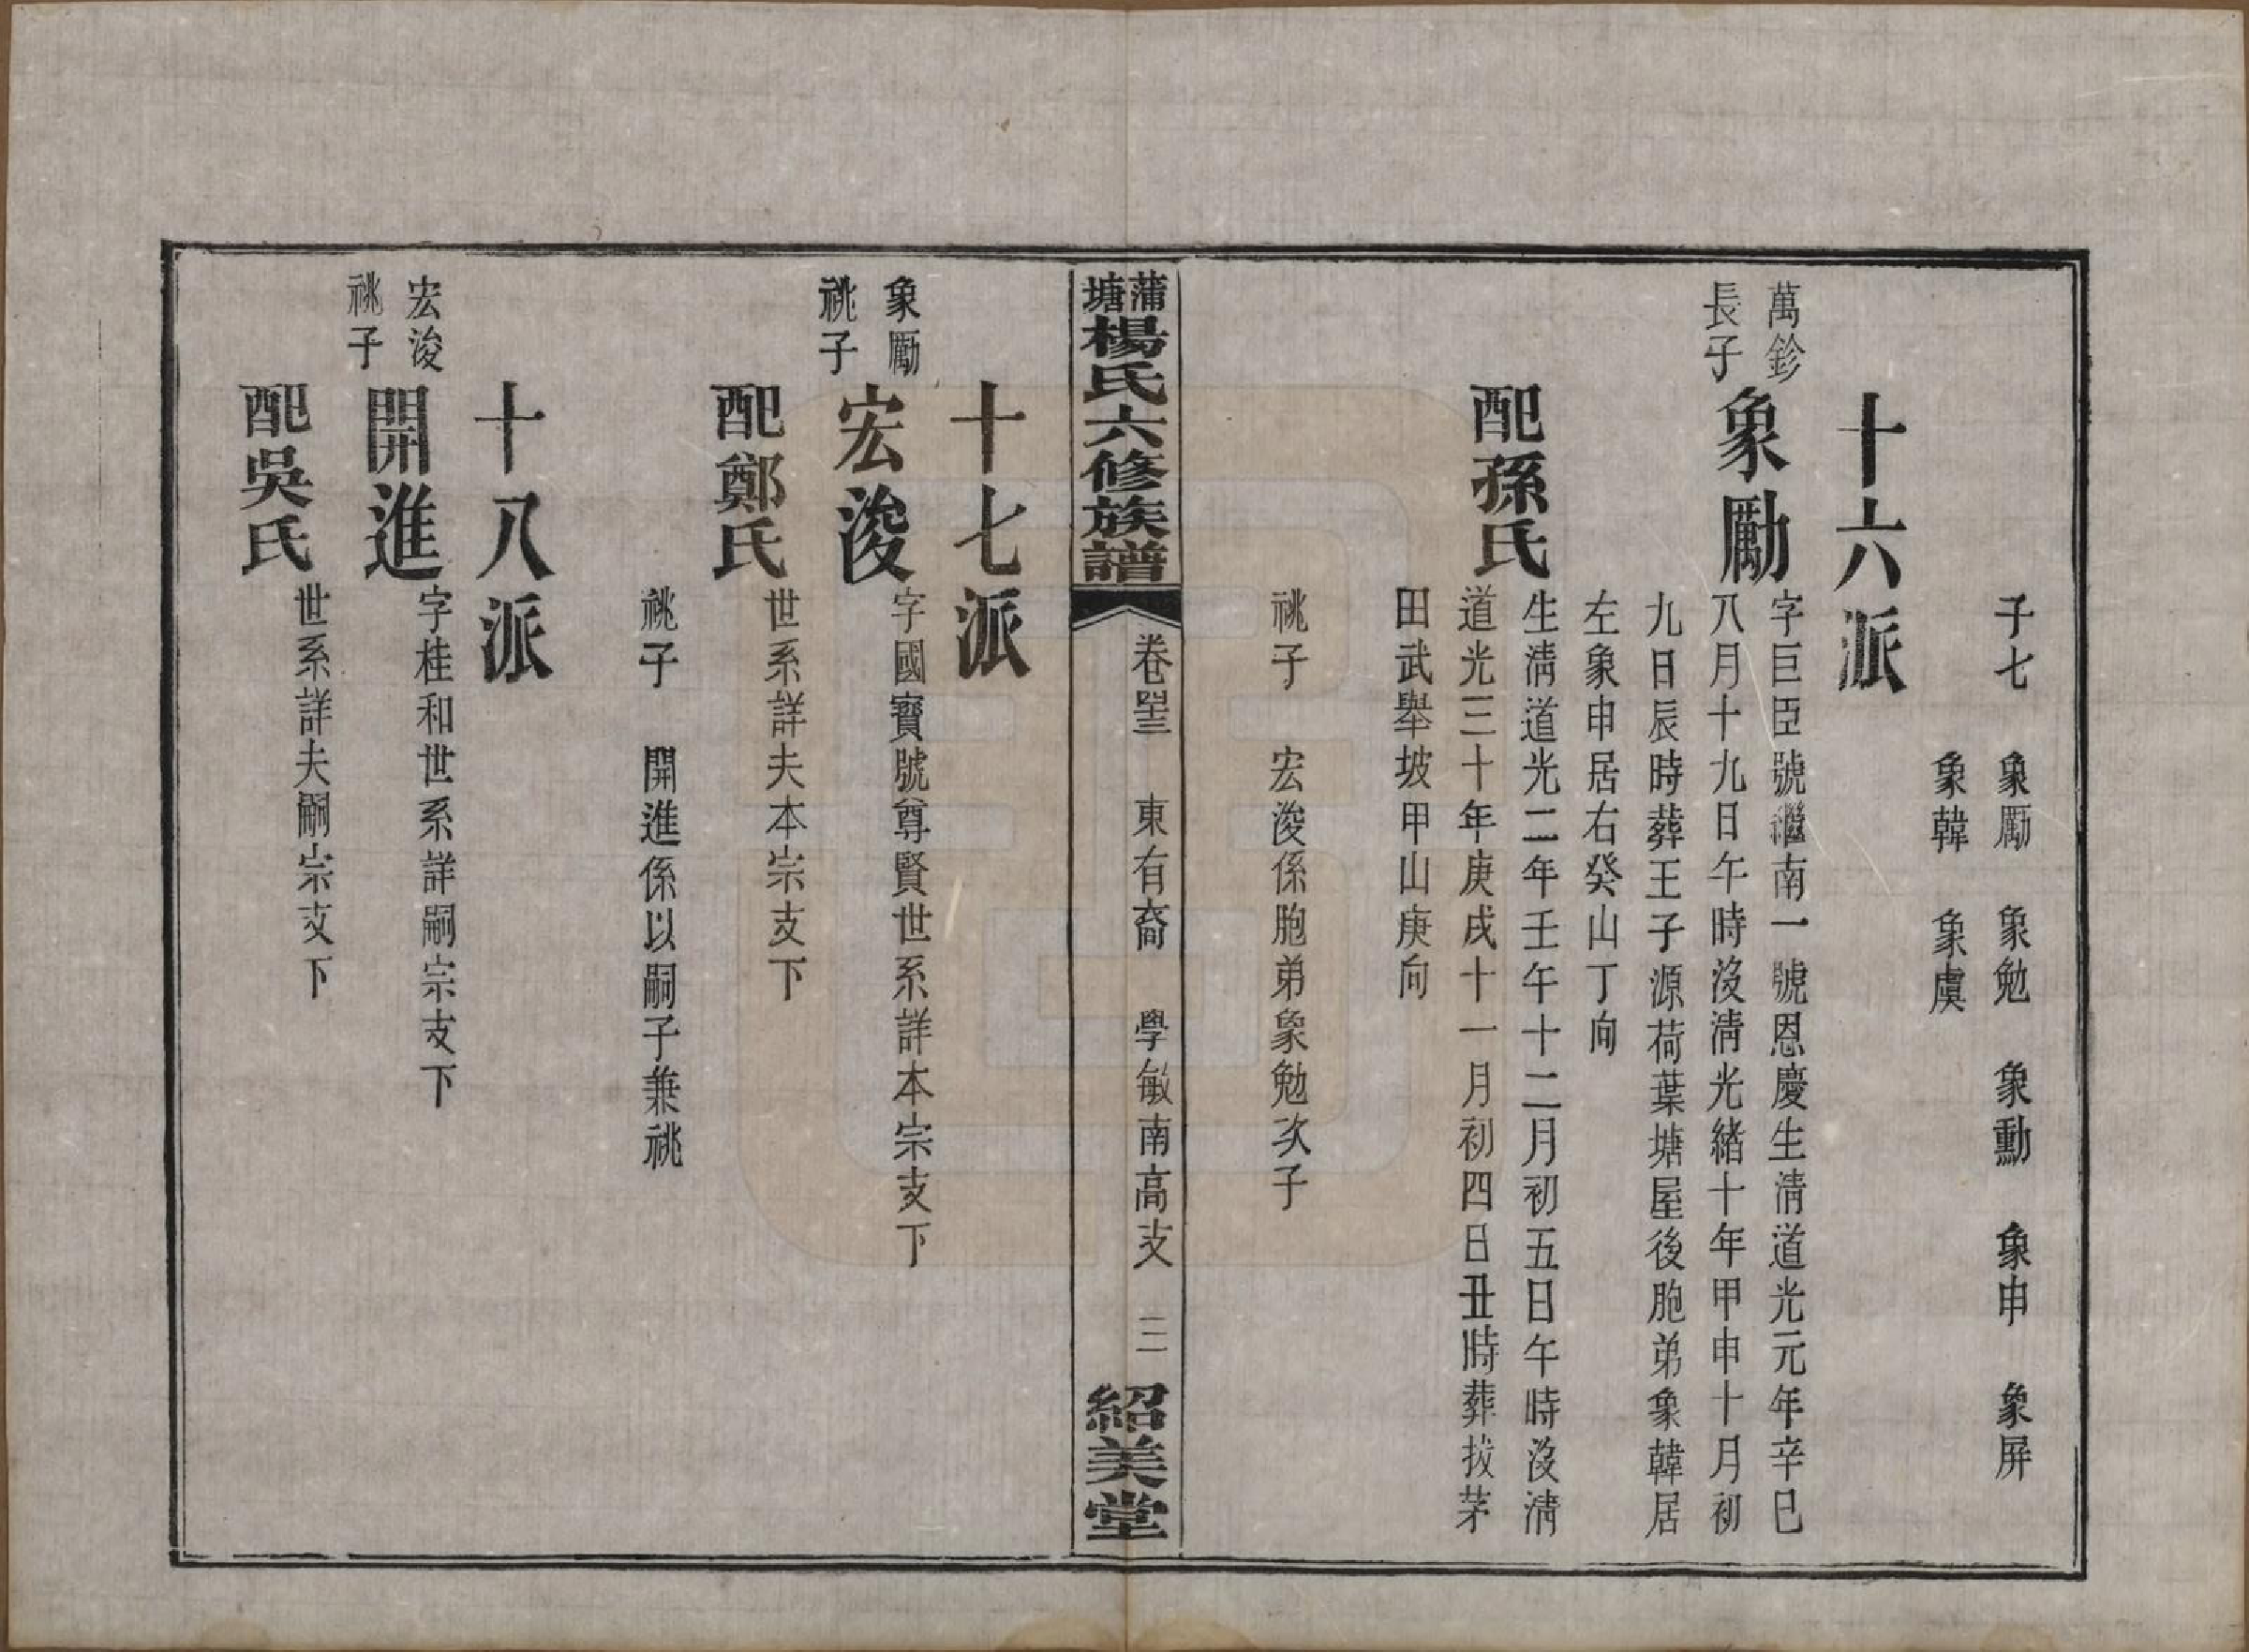 子七 象勵 象勉 象勳 象申 象屏
象韓 象虞
十六派
萬鉁
長子
象勵
字巨臣號繼南一號恩慶生清道光元年辛巳
八月十九日午時沒清光緒十年甲申十月初
九日辰時葬王子源荷葉塘屋後胞弟象韓居
左象申居右癸山丁向
配孫氏
生清道光二年壬午十二月初五日午時沒清
道光三十年庚戌十一月初四日丑時葬拔茅
田武舉坡甲山庚向
祧子 宏浚係胞弟象勉次子
蒲塘楊氏六修族譜
卷四十三 東有裔 學敏南高支 二
紹美堂
十七派
象勵
祧子
宏浚
字國寶號尊賢世系詳本宗支下
配鄭氏
世系詳夫本宗支下
祧子 開進係以嗣子兼祧
十八派
宏浚
祧子
開進
字桂和世系詳嗣宗支下
配吳氏
世系詳夫嗣宗支下